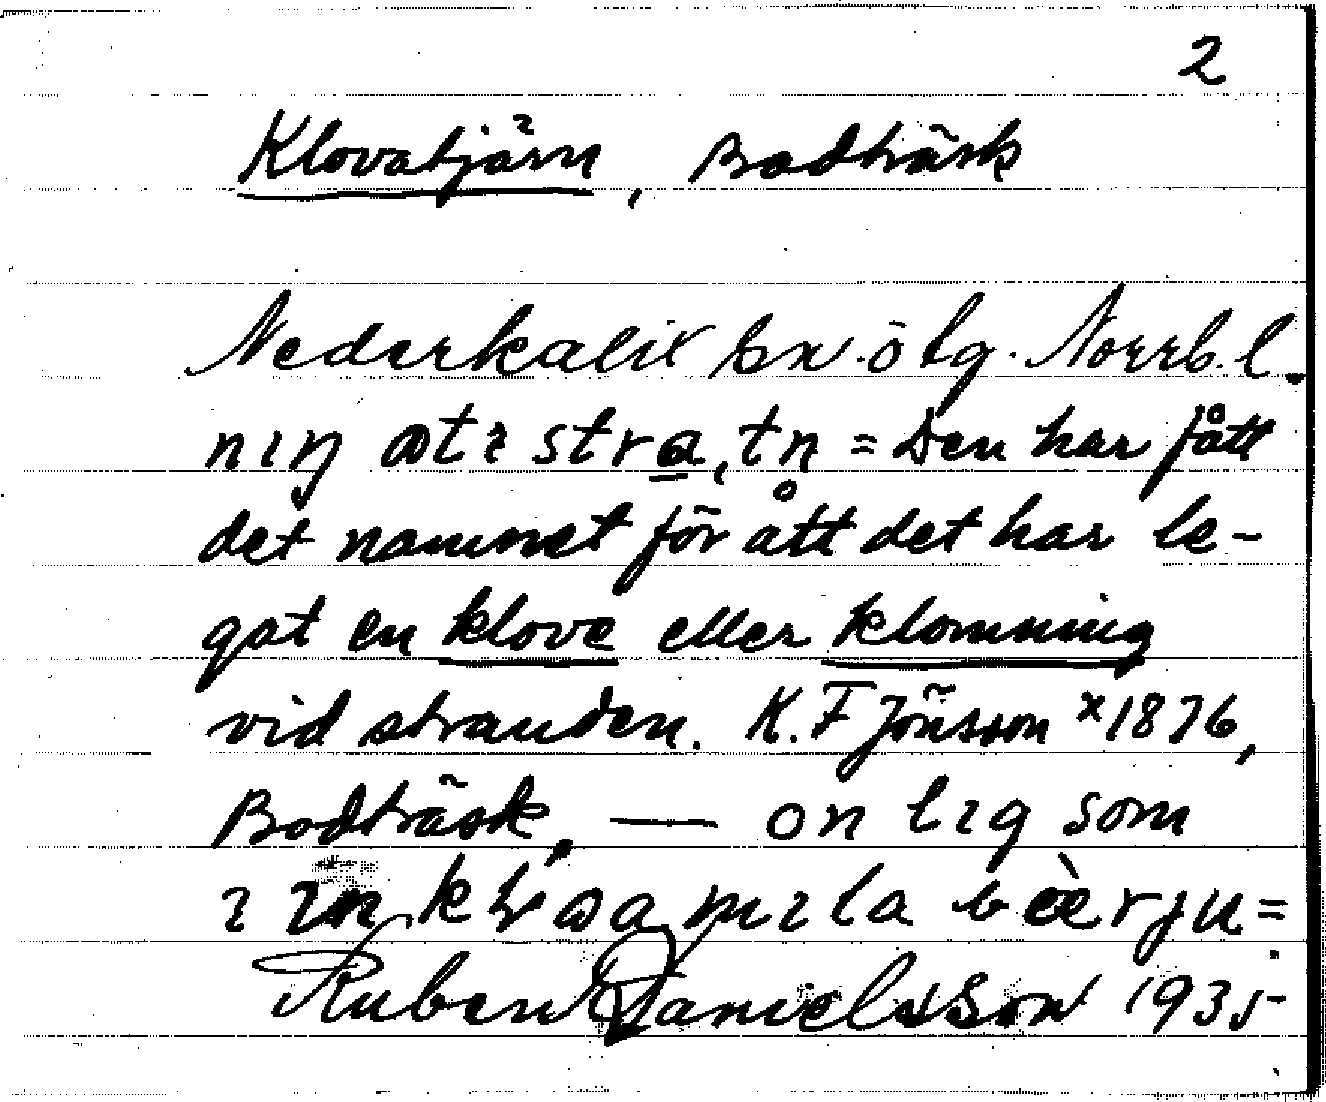 2
Klovatjärn, Bodträsk
Nederkalix sn. ö tg. Norrb. l.
nıŋ atı stra,tn = Den har fått
det namnet för att det har le-
gat en klove eller klomning
vid stranden. K. F Jönsson x1876,
Bodträsk, — on lıg som
ı ın mıla
Ruben Danielsson 1935